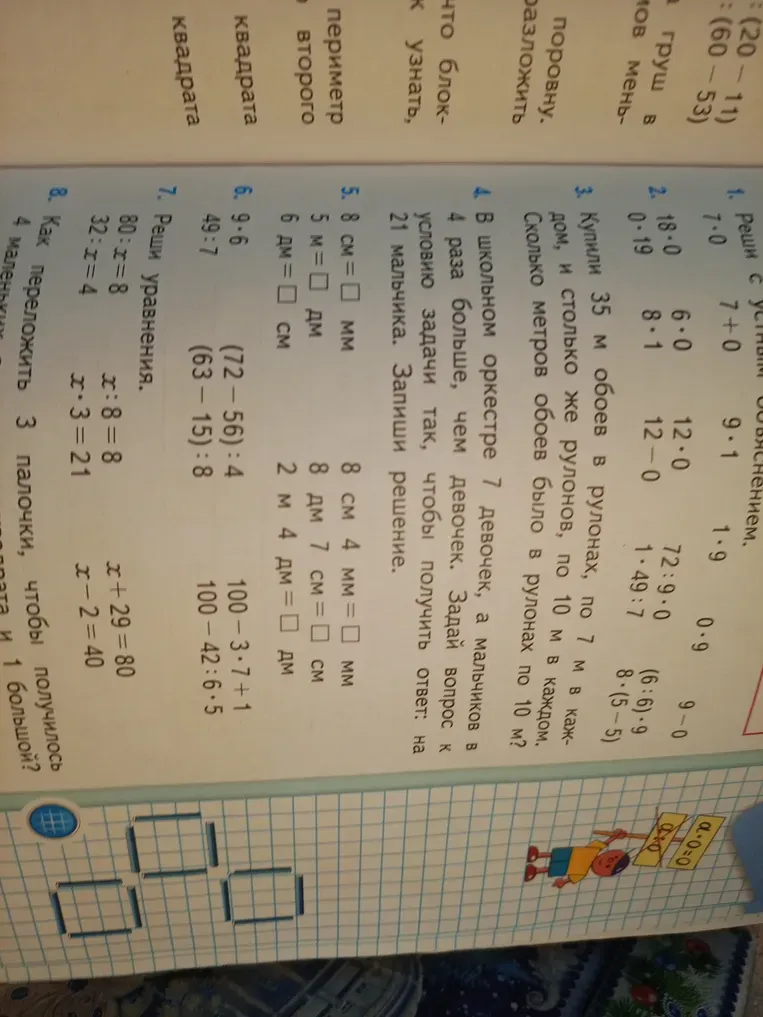 : (20 – 11)
: (60 – 53)
груш в
мень-
поровну.
разложить
что блок-
к узнать,
периметр
второго
квадрата
квадрата
1. Реши с устным объяснением.
7 · 0 7 + 0 9 · 1 1 · 9 0 · 9 9 – 0
2. 18 · 0 6 · 0 12 · 0 72 : 9 · 0 (6 : 6) · 9
0 · 19 8 · 1 12 – 0 1 · 49 : 7 8 · (5 – 5)
3. Купили 35 м обоев в рулонах, по 7 м в каж-
дом, и столько же рулонов, по 10 м в каждом.
Сколько метров обоев было в рулонах по 10 м?
4. В школьном оркестре 7 девочек, а мальчиков в
4 раза больше, чем девочек. Задай вопрос к
условию задачи так, чтобы получить ответ: на
21 мальчика. Запиши решение.
5. 8 см = □ мм 8 см 4 мм = □ мм
5 м = □ дм 8 дм 7 см = □ см
6 дм = □ см 2 м 4 дм = □ дм
6. 9 · 6 (72 – 56) : 4 100 – 3 · 7 + 1
49 : 7 (63 – 15) : 8 100 – 42 : 6 · 5
7. Реши уравнения.
80 : x = 8 x : 8 = 8 x + 29 = 80
32 : x = 4 x · 3 = 21 x – 2 = 40
8. Как переложить 3 палочки, чтобы получилось
4 маленьких и 1 большой?
a · 0 = 0